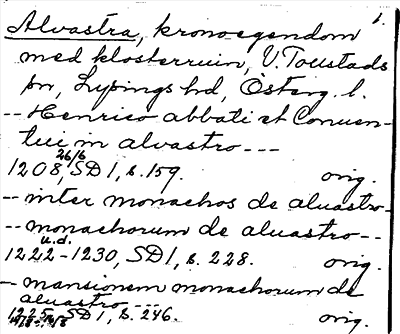 1.
Alvastra, kronoegendom
med klosterruin, V. Tollstads
sn, Lysings hd, Österg. l.
-- Henrico abbati et Conuen-
tui in aluastro ---
1208 26/6, SD 1, s. 159. orig.
-- inter monachos de aluastro-
-- monachorum de aluastro --
1222-1230 u.d., SD 1, s. 228. orig.
-- mansionem monachorum de
aluastro ---
1225, SD 1, s. 246. orig.